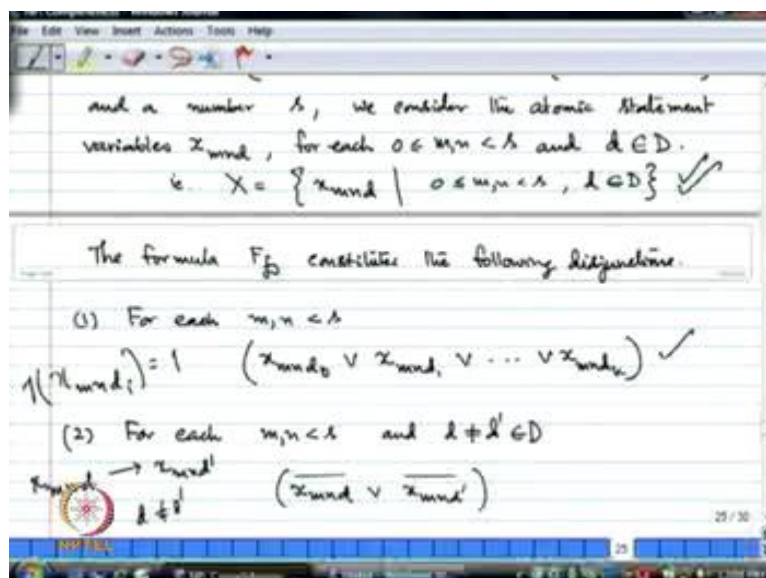 File Edit View Insert Actions Tools Help
and a number s, we consider the atomic statement
variables x_mnd, for each 0 ≤ m,n < s and d ∈ D.
ie. X = { x_mnd | 0 ≤ m,n < s, d ∈ D }
The formula F constitutes the following disjunctions.
(1) For each m,n < s
(x_mnd₀ ∨ x_mnd₁ ∨ ... ∨ x_mnd_k)
(x_mnd_i) = 1
(2) For each m,n < s and d ≠ d' ∈ D
x_mnd → x_mnd'
d ≠ d'
(x̅_mnd ∨ x̅_mnd')
NPTEL
25 / 30
25